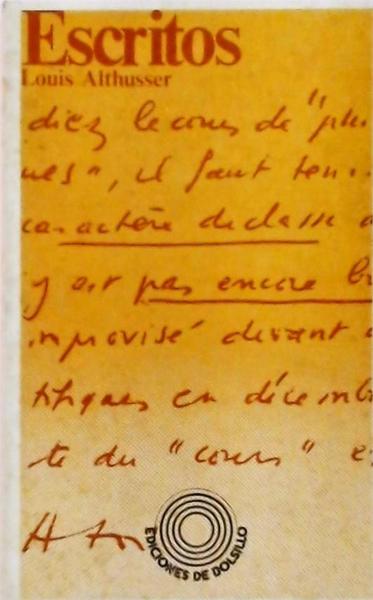 Escritos
Louis Althusser
diez le cours de "phi
ues", il faut
caractère de classe
y est pas encore
improvisé devant
tifiques en décemb
te du "cours"
EDICIONES DE BOLSILLO